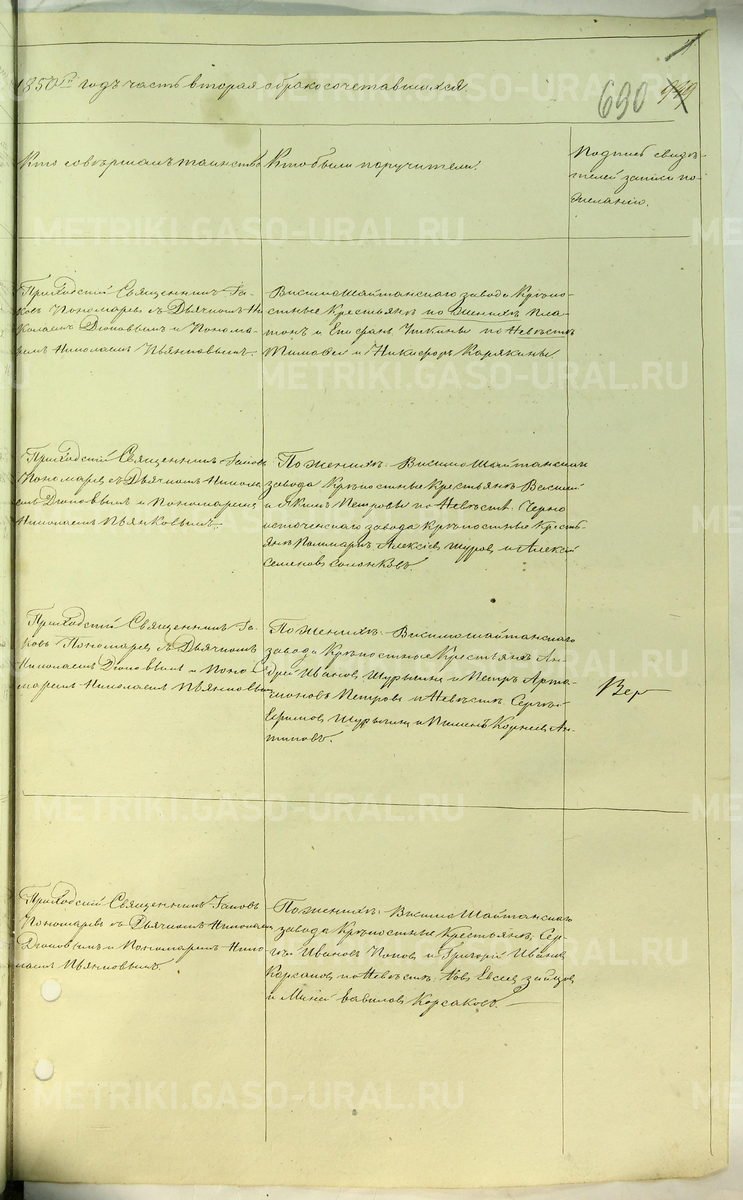 1850го годъ часть вторая о бракосочетавшихся.
690
Кто совершалъ таинство
Кто были поручители.
Подпись свидѣ-
телей записи по
желанію.
Приходскій Священникъ Іа-
ковъ Пономаревъ съ Дьячкомъ Ни-
колаемъ Діоповымъ и Понома-
ремъ Николаемъ Пьянковымъ.
Висимошайтанскаго завода Крѣпо-
стные Крестьяне по Женихѣ Пла-
тонъ и Уткины по Невѣстѣ
Тимофей и Никифоръ Карякины
Приходскій Священникъ Іаковъ
Пономаревъ съ Дьячкомъ Никола-
емъ Діоповымъ и Пономаремъ
Николаемъ Пьянковымъ.
По Женихѣ: Висимошайтанскаго
завода Крѣпостные Крестьяне Василій
и Якимъ Петровы по Невѣстѣ: Черно
источенскаго завода Крѣпостные Кресть-
яне Алексѣевъ Шуровъ и Алексѣй
Семеновъ
Приходскій Священникъ Іа-
ковъ Пономаревъ съ Дьячкомъ
Николаемъ Діоповымъ и Поно-
маремъ Николаемъ Пьянковымъ
По Женихѣ: Висимошайтанскаго
завода Крѣпостные Крестьяне Ан-
дрей Ивановъ и Петръ Арта-
моновъ Петровы по Невѣстѣ Сергѣй
Ефимовъ и Пименъ Корниловъ Ан-
типовъ.
Вер
Приходскій Священникъ Іаковъ
Пономаревъ съ Дьячкомъ Николаемъ
Діоповымъ и Пономаремъ Нико-
лаемъ Пьянковымъ.
По Женихѣ: Висимошайтанскаго
завода Крѣпостные Крестьяне: Сер-
гѣй Ивановъ Поповъ и Григорій Ивановъ
Корсаковъ по Невѣстѣ: Евсеевъ Зайцовъ
и Михей Вавиловъ Корсаковъ.
METRIKI.GASO-URAL.RU